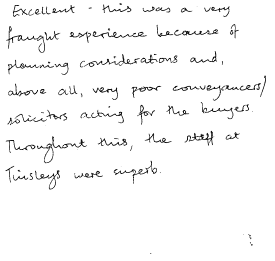 Excellent - this was a very
fraught experience because of
planning considerations and,
above all, very poor conveyancers/
solicitors acting for the buyers.
Throughout this, the staff at
Tinsleys were superb.